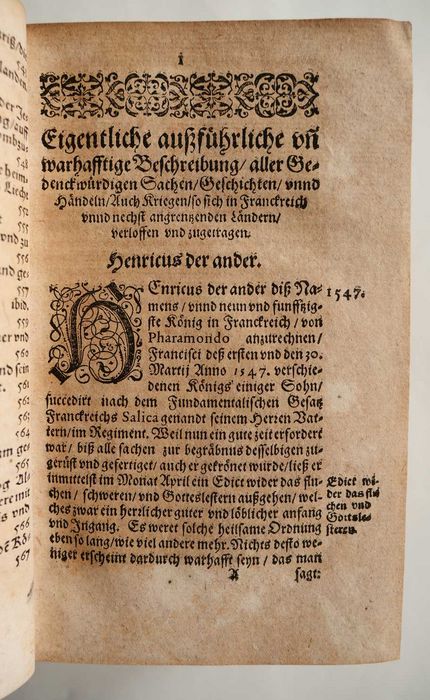 1
Eigentliche außführliche vñ
warhafftige Beschreibung/ aller Ge-
denckwürdigen Sachen/Geschichten/ vnnd
Händeln/Auch Kriegen/so sich in Franckreich
vnnd nechst angrentzenden Ländern/
verloffen vnd zugetragen.
Henricus der ander.
HEnricus der ander diß Na-
mens/ vnnd neun vnd funfftzig-
ste König in Franckreich/ von
Pharamondo anzurechnen/
Francisci deß ersten vnd den 30.
Martij Anno 1547. verschie-
denen Königs einiger Sohn/
succedirt nach dem Fundamentalischen Gesatz
Franckreichs Salica genandt seinem Herren Vat-
tern/im Regiment. Weil nun ein gute zeit erfordert
war/ biß alle sachen zur begräbnus desselbigen zu-
gerüst vnd gefertiget/auch er gekrönet wurde/ließ er
inmittelst im Monat April ein Edict wider das flu-
chen/ schweren/ vnd Gotteslestern außgehen/ wel-
ches zwar ein herzlicher guter vnd löblicher anfang
vnd Ingang. Es weret solche heilsame Ordnung
eben so lang/wie viel andere mehr. Nichts desto we-
niger erscheint dardurch warhafft seyn/ das man
A
sagt:
1547.
Edict wi-
der das flu
chen vnd
Gottsle-
steren.
548
ibid.
560
563
565
566
567